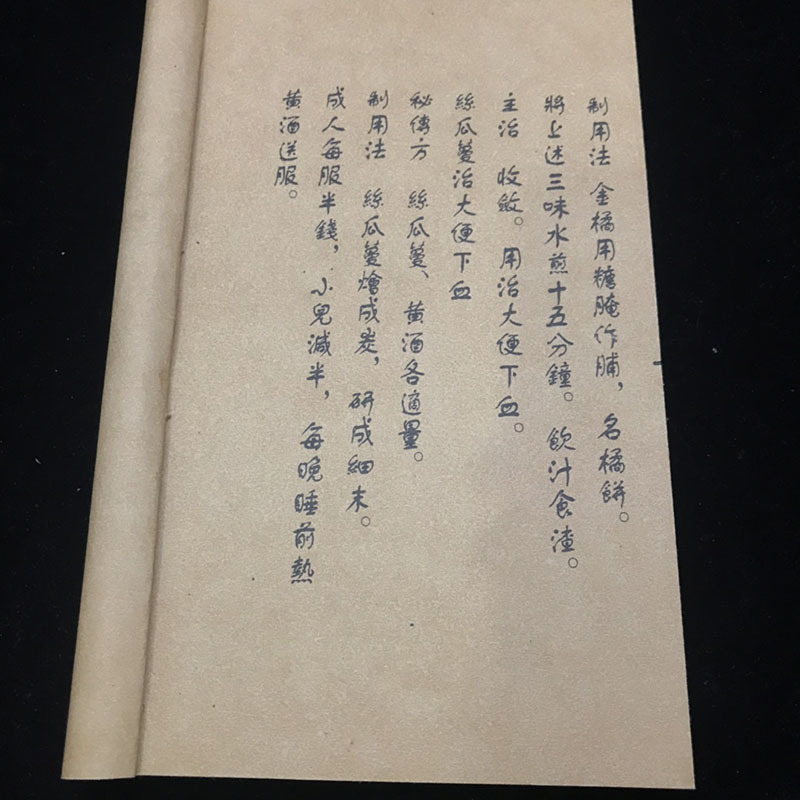 制用法 金橘用糖腌作脯，名橘餅。
將上述三味水煎十五分鐘。飲汁食渣。
主治 收斂。用治大便下血。
絲瓜蔓治大便下血
秘傳方 絲瓜蔓、黄酒各適量。
制用法 絲瓜蔓燴成炭，研成細末。
成人每服半錢，小兒減半，每晚睡前熱
黄酒送服。